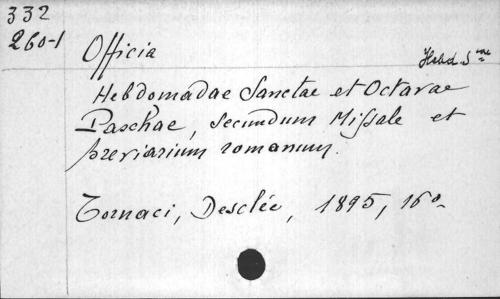 332
260-1
Officia
Hebd. Sae
Hebdomadae Sanctae et Octavae
Paschae, secundum Missale et
breviarium romanum.
Tornaci, Desclée, 1895, 16o.